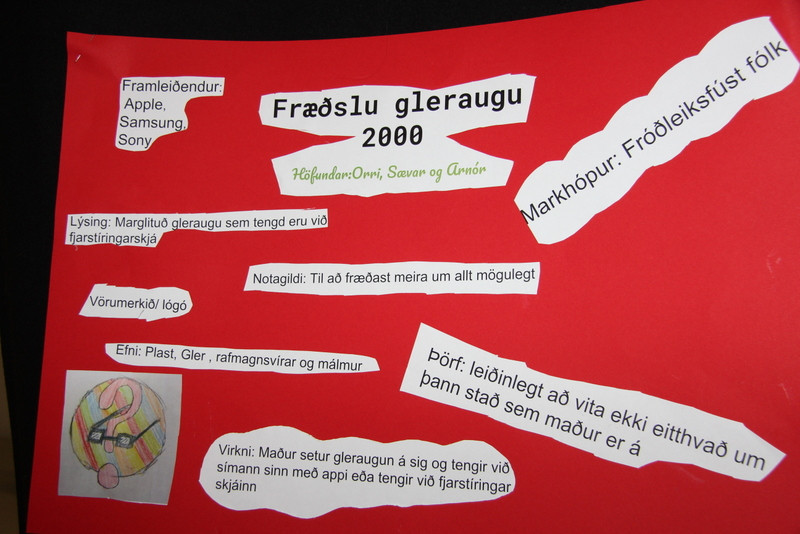 Framleiðendur:
Apple,
Samsung,
Sony
Fræðslu gleraugu
2000
Höfundar:Orri, Sævar og Arnór
Markhópur: Fróðleiksfúst fólk
Lýsing: Marglituð gleraugu sem tengd eru við
fjarstíringarskjá
Notagildi: Til að fræðast meira um allt mögulegt
Vörumerkið/ lógó
Efni: Plast, Gler , rafmagnsvírar og málmur
Þörf: leiðinlegt að vita ekki eitthvað um
þann stað sem maður er á
Virkni: Maður setur gleraugun á sig og tengir við
símann sinn með appi eða tengir við fjarstíringar
skjáinn